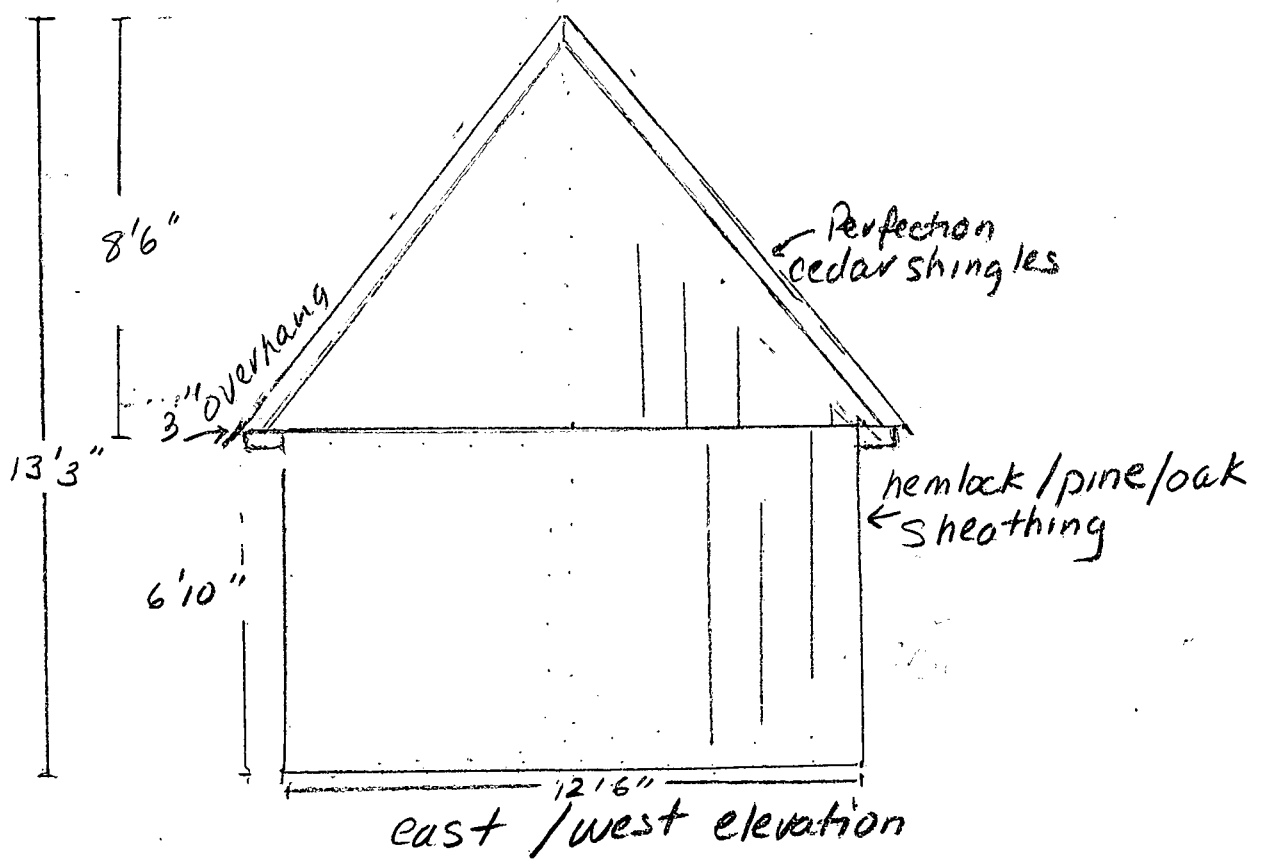 8'6"
Perfection
cedar shingles
3" overhang
13'3"
hemlock/pine/oak
sheathing
6'10"
12'6"
east/west elevation